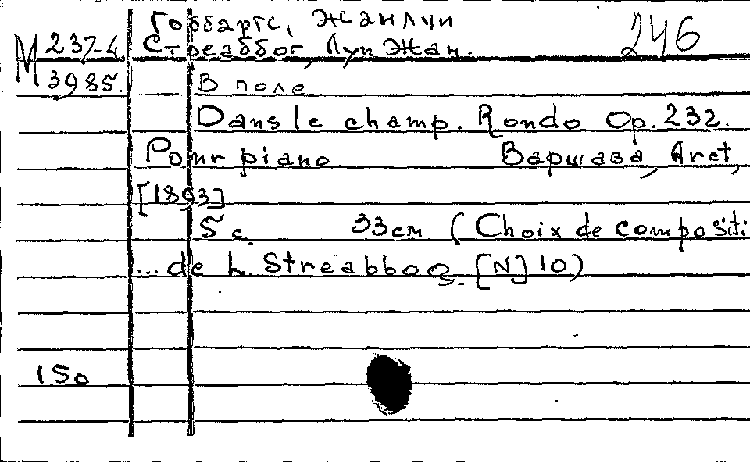 Гоббартс, Жан Луи
М 237-4 Стреаббог, Луи Жан. 246
3985. В поле
Dans le champ. Rondo Op. 232.
Pour piano Варшава, Arct,
[1893]
5 с. 33 см (Choix de compositi
... de L. Streabbog. [N] 10)
150